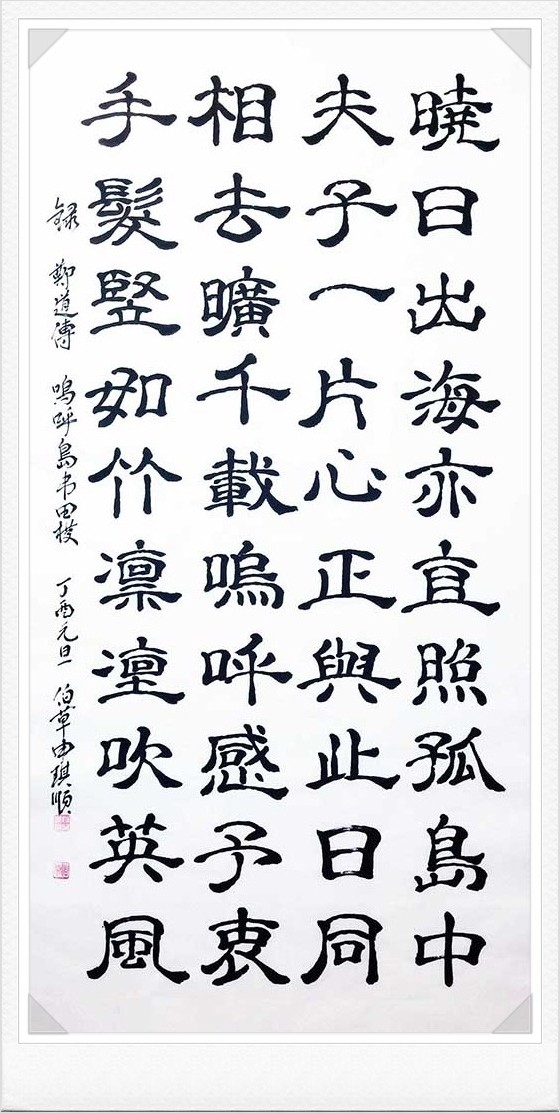 曉日出海亦直照孤島中
夫子一片心正與此日同
相去曠千載嗚呼感予衷
手髮竪如竹凜凜吹英風
録 鄭道傳 嗚呼島弔田橫 丁酉元旦 伯草